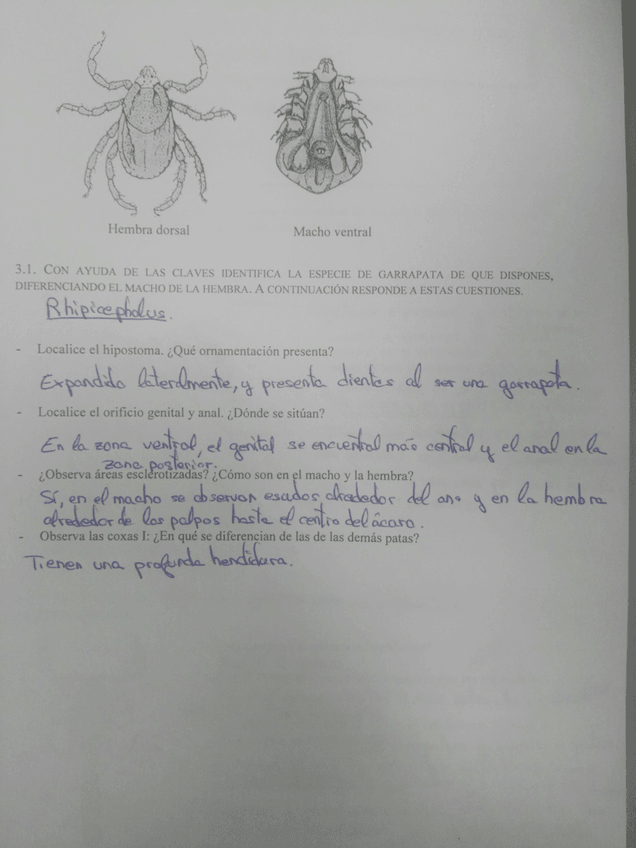 Hembra dorsal
Macho ventral
3.1. CON AYUDA DE LAS CLAVES IDENTIFICA LA ESPECIE DE GARRAPATA DE QUE DISPONES,
DIFERENCIANDO EL MACHO DE LA HEMBRA. A CONTINUACIÓN RESPONDE A ESTAS CUESTIONES.
Rhipicephalus.
- Localice el hipostoma. ¿Qué ornamentación presenta?
Expandido lateralmente, y presenta dientes al ser una garrapata.
- Localice el orificio genital y anal. ¿Dónde se sitúan?
En la zona ventral, el genital se encuentral más central y el anal en la
zona posterior.
- ¿Observa áreas esclerotizadas? ¿Cómo son en el macho y la hembra?
Sí, en el macho se observan escudos alrededor del ano y en la hembra
alrededor de los palpos hasta el centro del ácaro.
- Observa las coxas I: ¿En qué se diferencian de las de las demás patas?
Tienen una profunda hendidura.